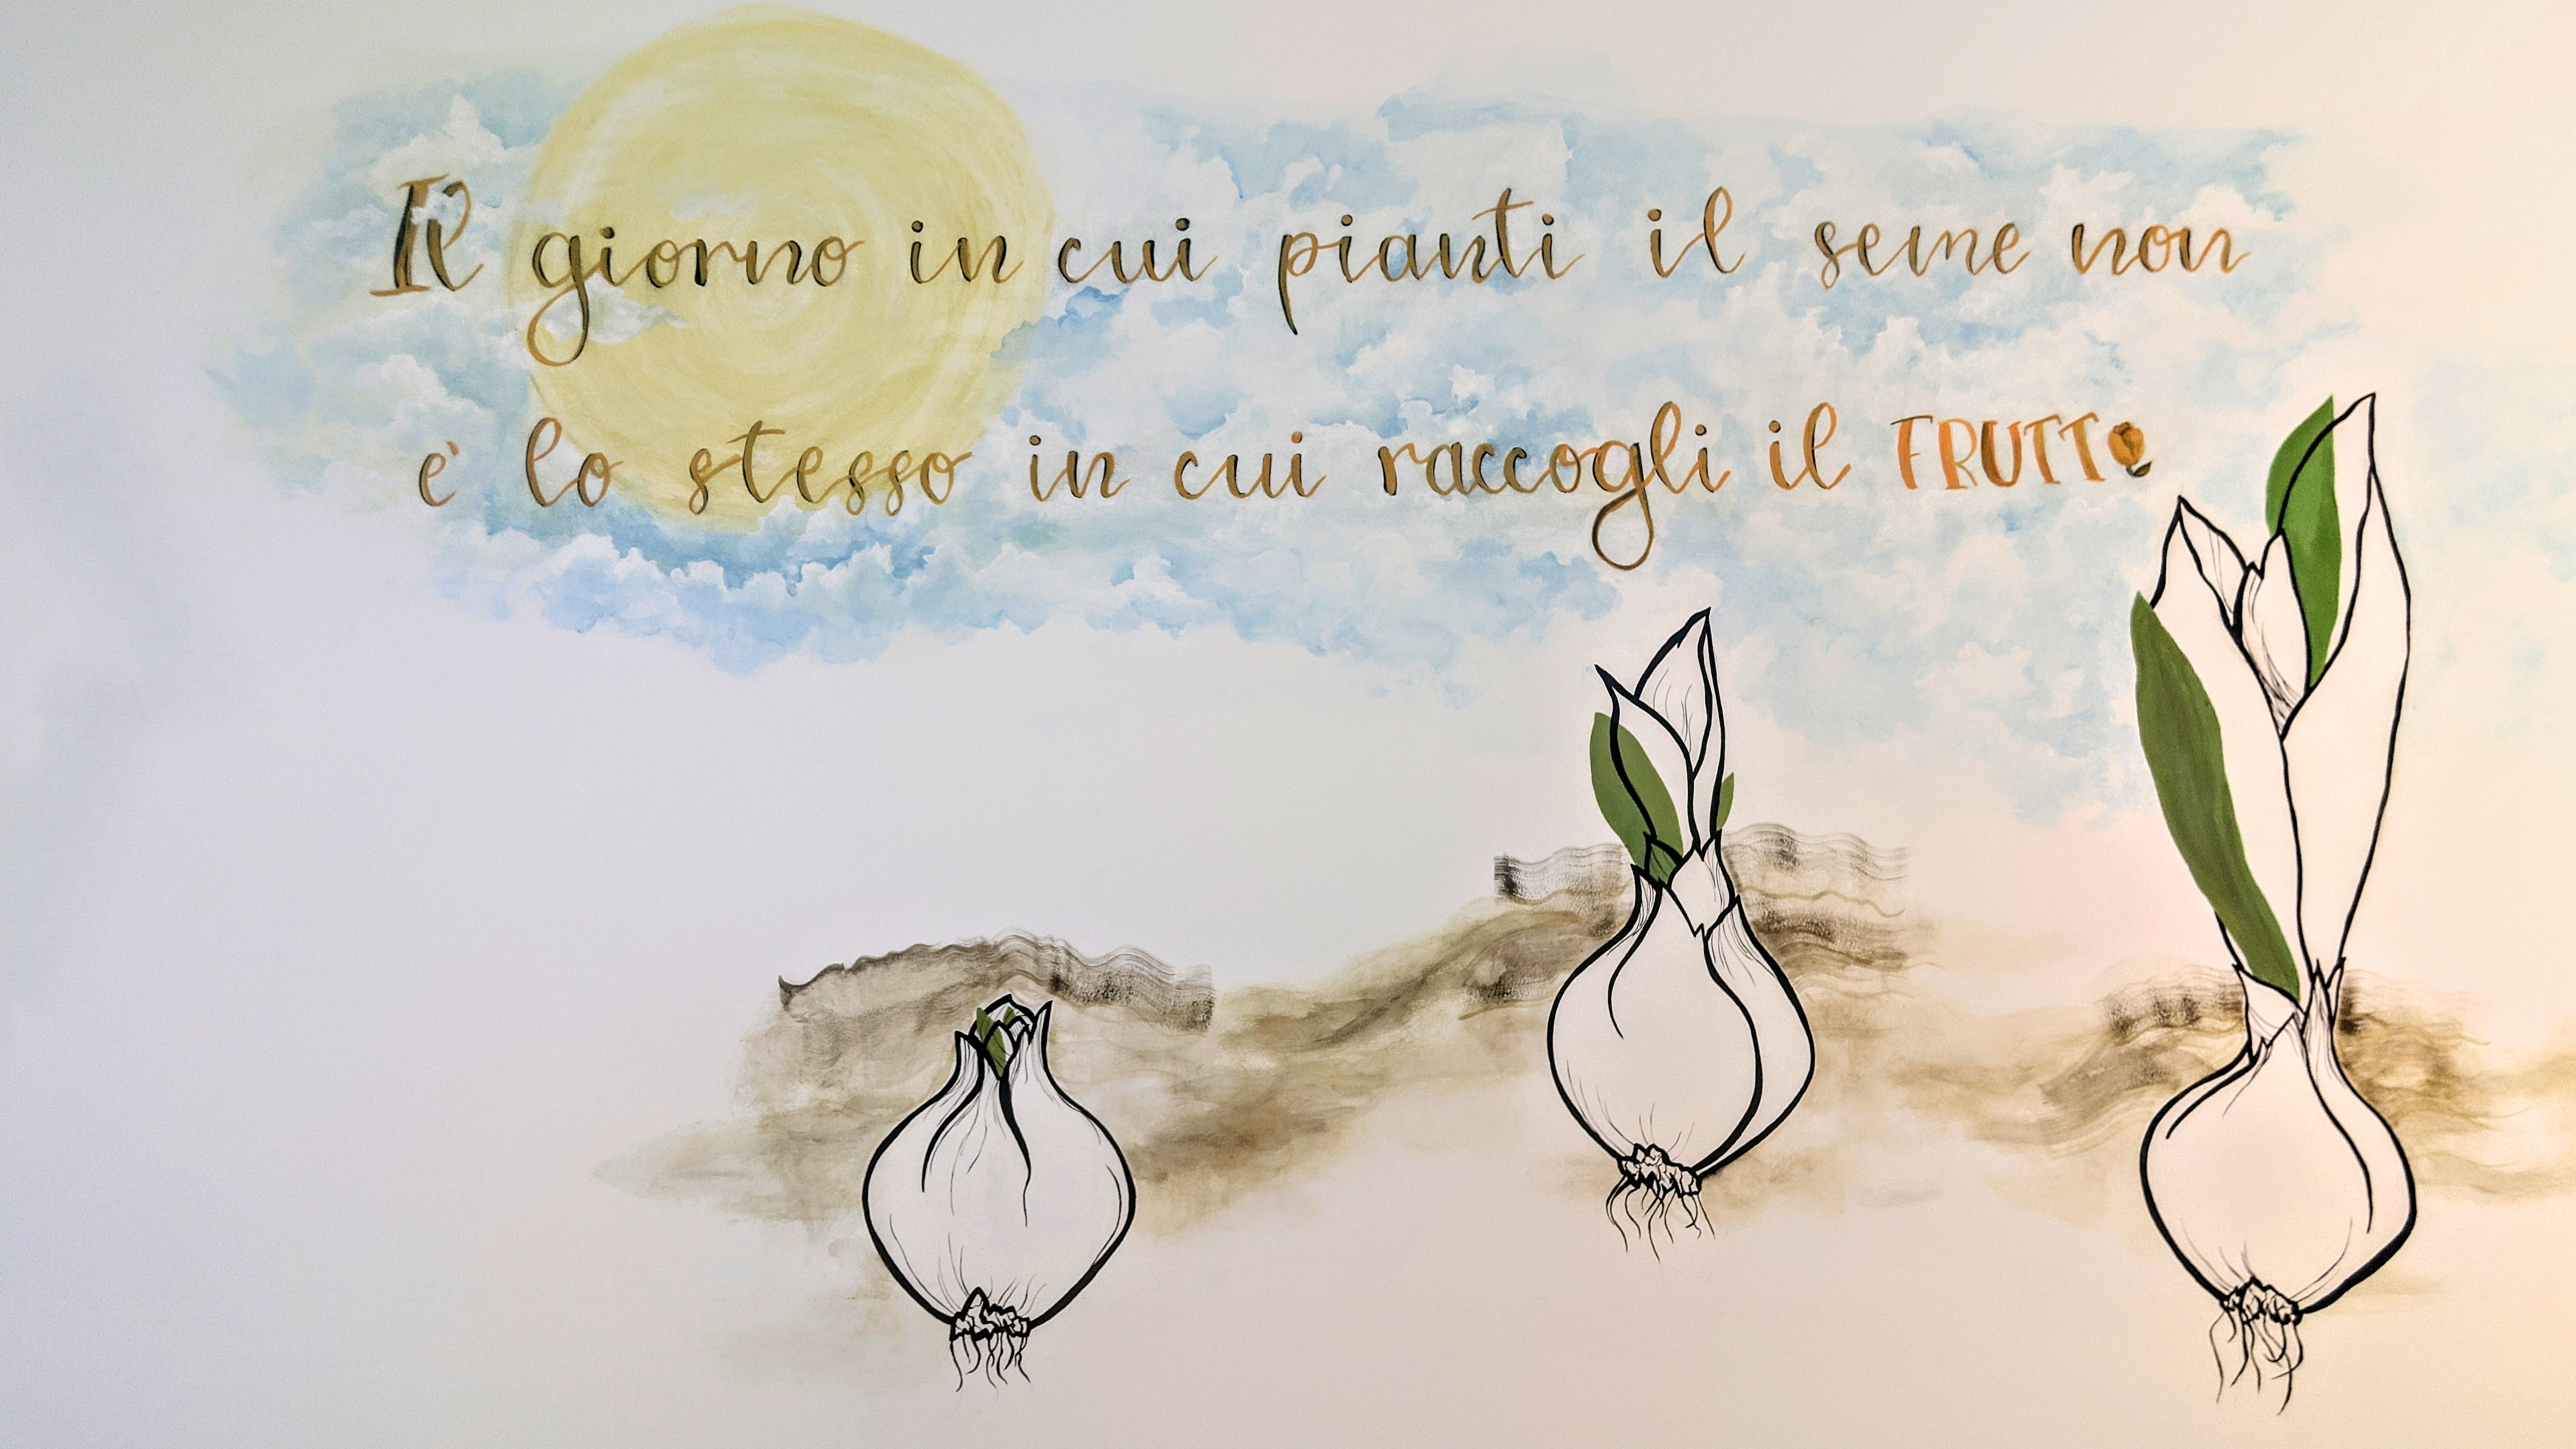 Il giorno in cui pianti il seme non
è lo stesso in cui raccogli il FRUTTO